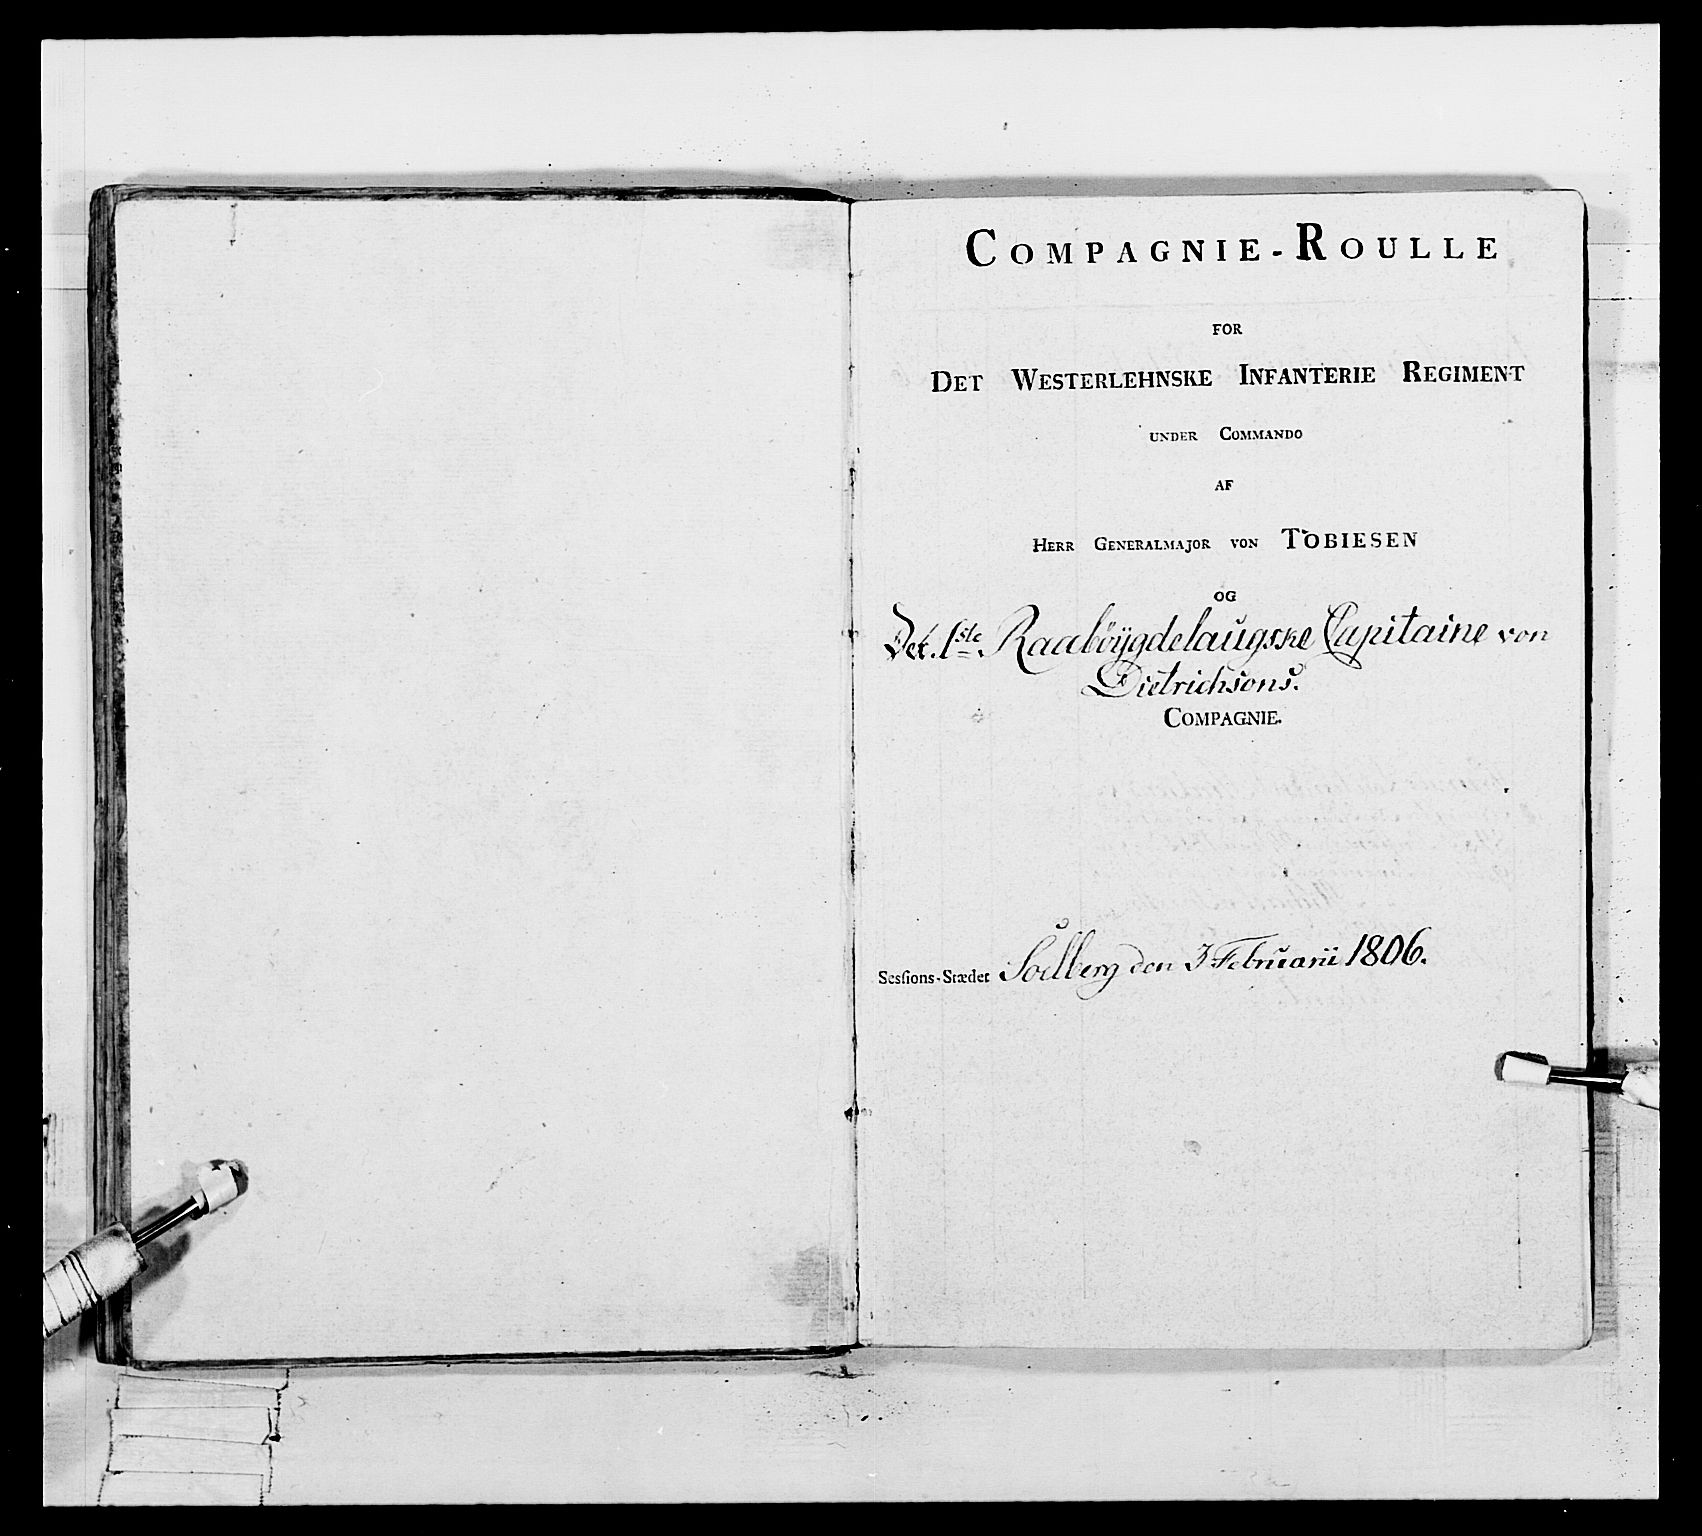 COMPAGNIE-ROULLE
FOR
DET WESTERLEHNSKE INFANTERIE REGIMENT
UNDER COMMANDO
AF
HERR GENERALMAJOR VON TOBIESEN
OG
Det 1ste Raaböÿgdelaugske Capitaine von
Dietrichsons.
COMPAGNIE.
Sessions-Stædet Soelberg den 3 Februarii 1806.